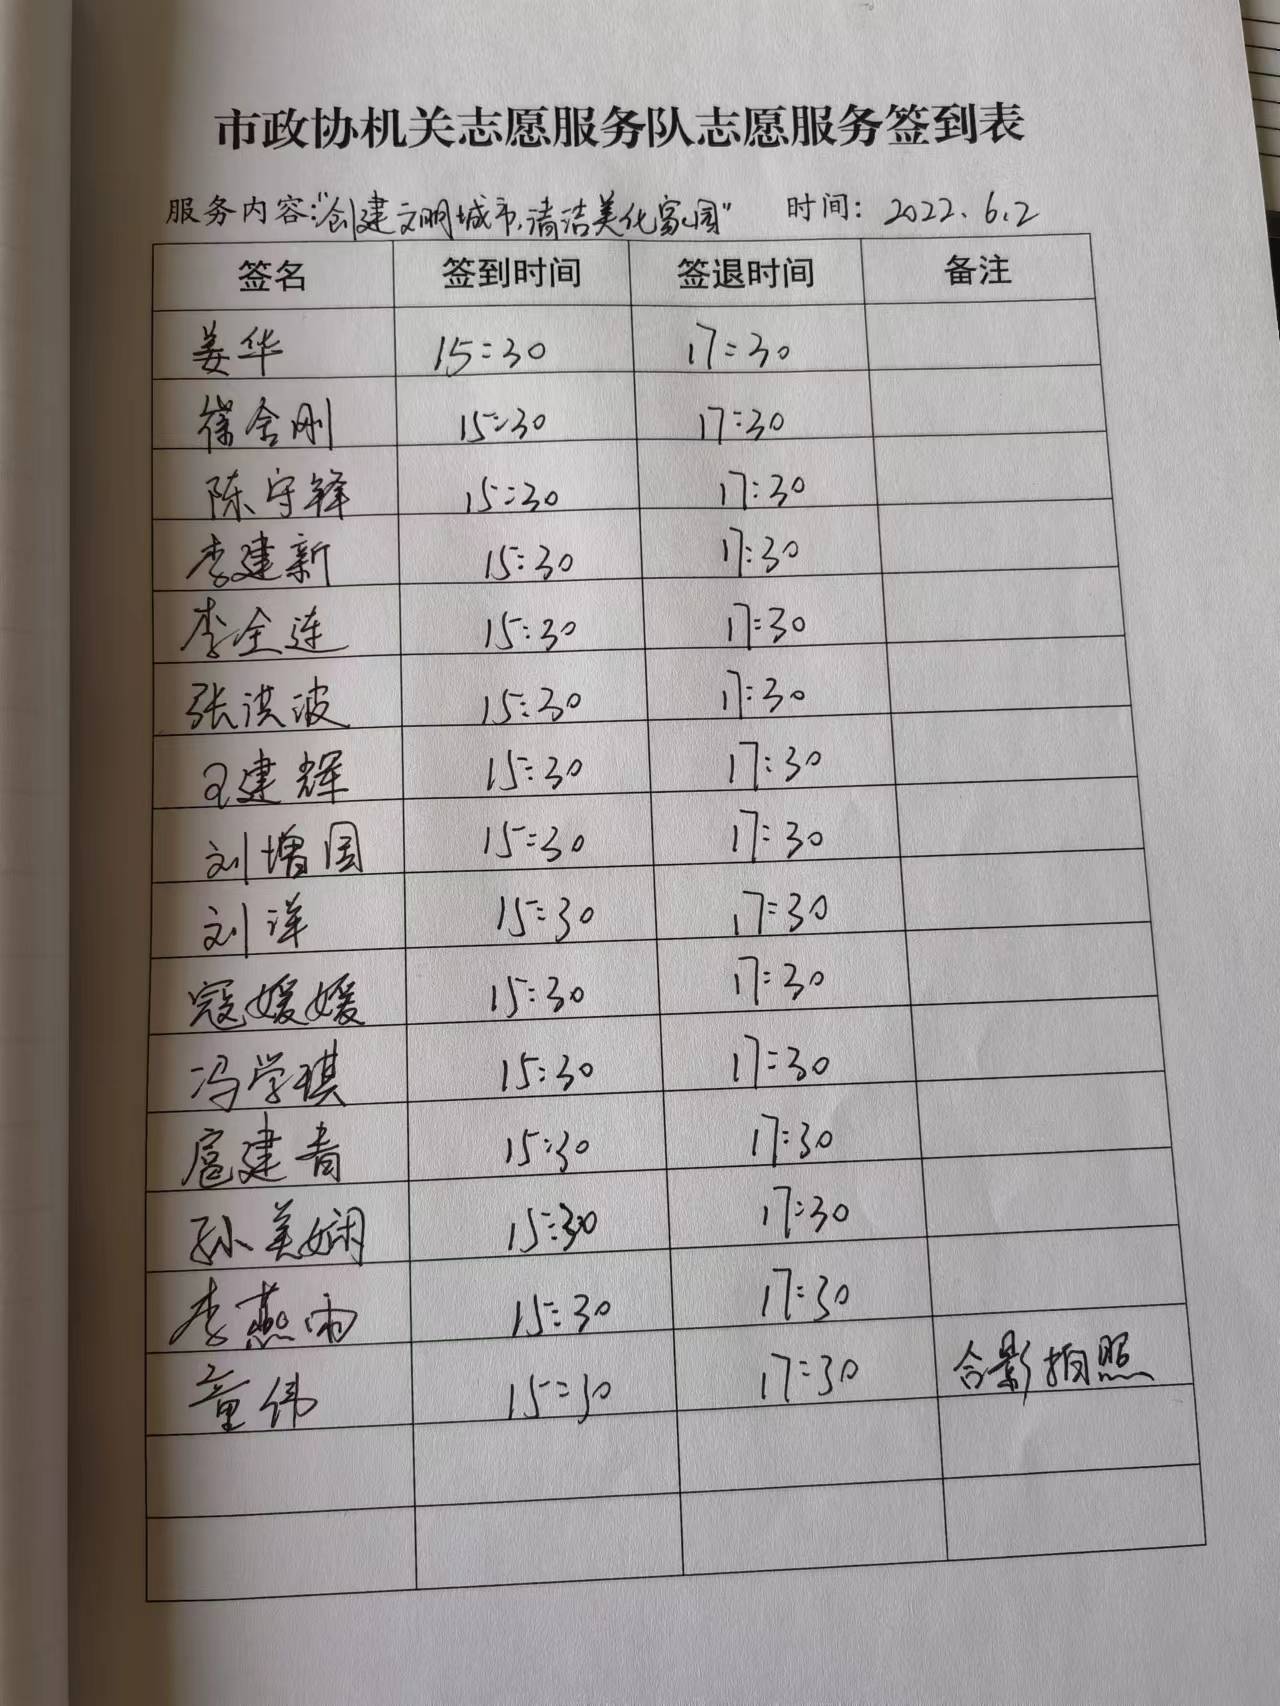 市政协机关志愿服务队志愿服务签到表
服务内容:"创建文明城市,清洁美化家园" 时间: 2022.6.2
签名 签到时间 签退时间 备注
姜华 15:30 17:30
15:30 17:30
陈守锋 15:30 17:30
李建新 15:30 17:30
李全连 15:30 17:30
张洪波 15:30 17:30
王建辉 15:30 17:30
刘增国 15:30 17:30
刘洋 15:30 17:30
寇媛媛 15:30 17:30
冯学琪 15:30 17:30
扈建青 15:30 17:30
孙美娴 15:30 17:30
李燕雨 15:30 17:30
童伟 15:30 17:30 合影拍照